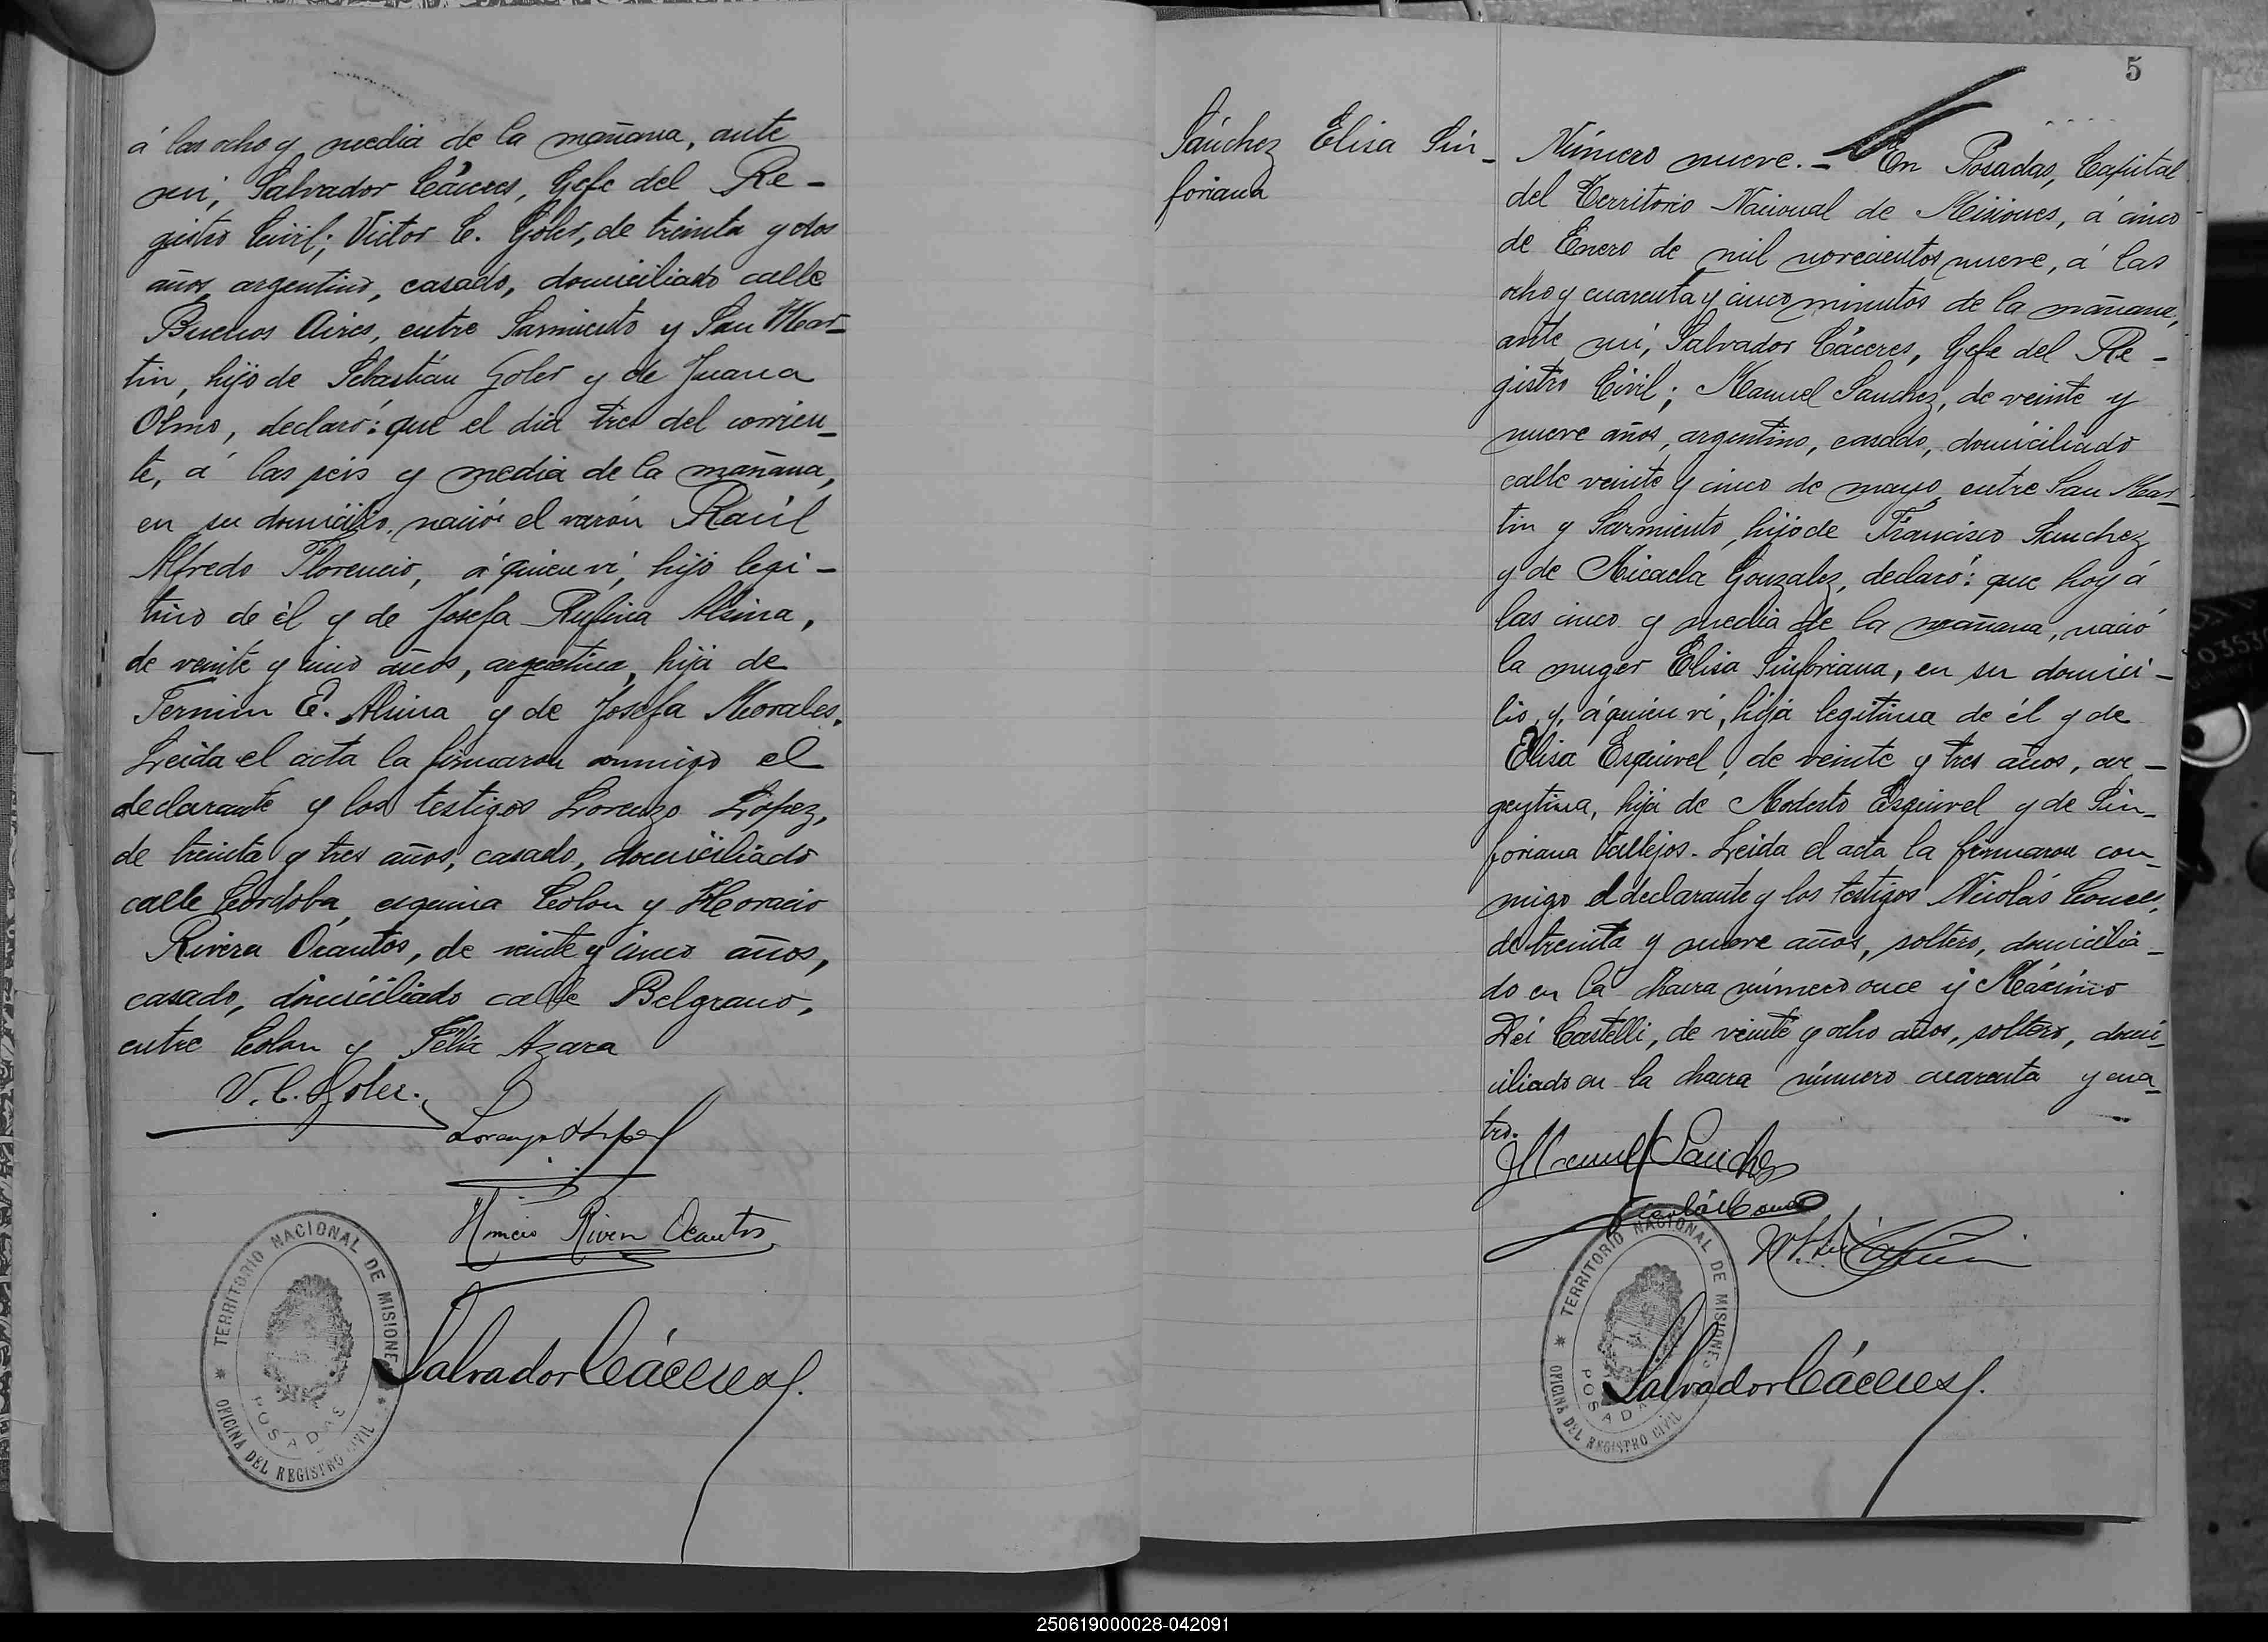 á las ocho y media de la mañana, ante
mi, Salvador Cáceres, Gefe del Re-
gistro Civil; Victor C. Goler, de treinta y dos
años, argentino, casado, domiciliado calle
Buenos Aires, entre Sarmiento y San Mar-
tin, hijo de Sebastián Goler y de Juana
Olmo, declaró: que el dia tres del corrien-
te, á las seis y media de la mañana,
en su domicilio, nació el varón Raúl
Alfredo Florencio, á quien ví, hijo legi-
timo de él y de Josefa Rufina Alsina,
de veinte y cinco años, argentina, hija de
Fermin E. Alsina y de Josefa Morales.
Leida el acta la firmaron conmigo el
declarante y los testigos Lorenzo López,
de treinta y tres años, casado, domiciliado
calle Córdoba, esquina Colon y Horacio
Rivera Ocantos, de veinte y cinco años,
casado, domiciliado calle Belgrano,
entre Colon y Félix Azara
V. C. Goler.
Lorenzo López
Horacio Rivera Ocantos
TERRITORIO NACIONAL DE MISIONES
POSADAS
OFICINA DEL REGISTRO CIVIL
Salvador Cáceres
5
Sánchez Elisa Sin-
foriana
Número nueve.- En Posadas, Capital
del Territorio Nacional de Misiones, á cinco
de Enero de mil novecientos nueve, á las
ocho y cuarenta y cinco minutos de la mañana,
ante mi, Salvador Cáceres, Gefe del Re-
gistro Civil; Manuel Sanchez, de veinte y
nueve años, argentino, casado, domiciliado
calle veinte y cinco de mayo, entre San Mar-
tin y Sarmiento, hijo de Francisco Sanchez
y de Micaela Gonzalez, declaró: que hoy á
las cinco y media de la mañana, nació
la muger Elisa Sinforiana, en su domici-
lio, y, á quien ví, hija legitima de él y de
Elisa Esquivel, de veinte y tres años, ar-
gentina, hija de Modesto Esquivel y de Sin-
foriana Vallejos. Leida el acta la firmaron con-
migo el declarante y los testigos Nicolás
de treinta y nueve años, soltero, domicilia-
do en la chacra número once y Máximo
Dei Castelli, de veinte y ocho años, soltero, domi-
ciliado en la chacra número cuarenta y cua-
tro.
Manuel Sanchez
Nicolás
TERRITORIO NACIONAL DE MISIONES
POSADAS
OFICINA DEL REGISTRO CIVIL
Salvador Cáceres
250619000028-042091